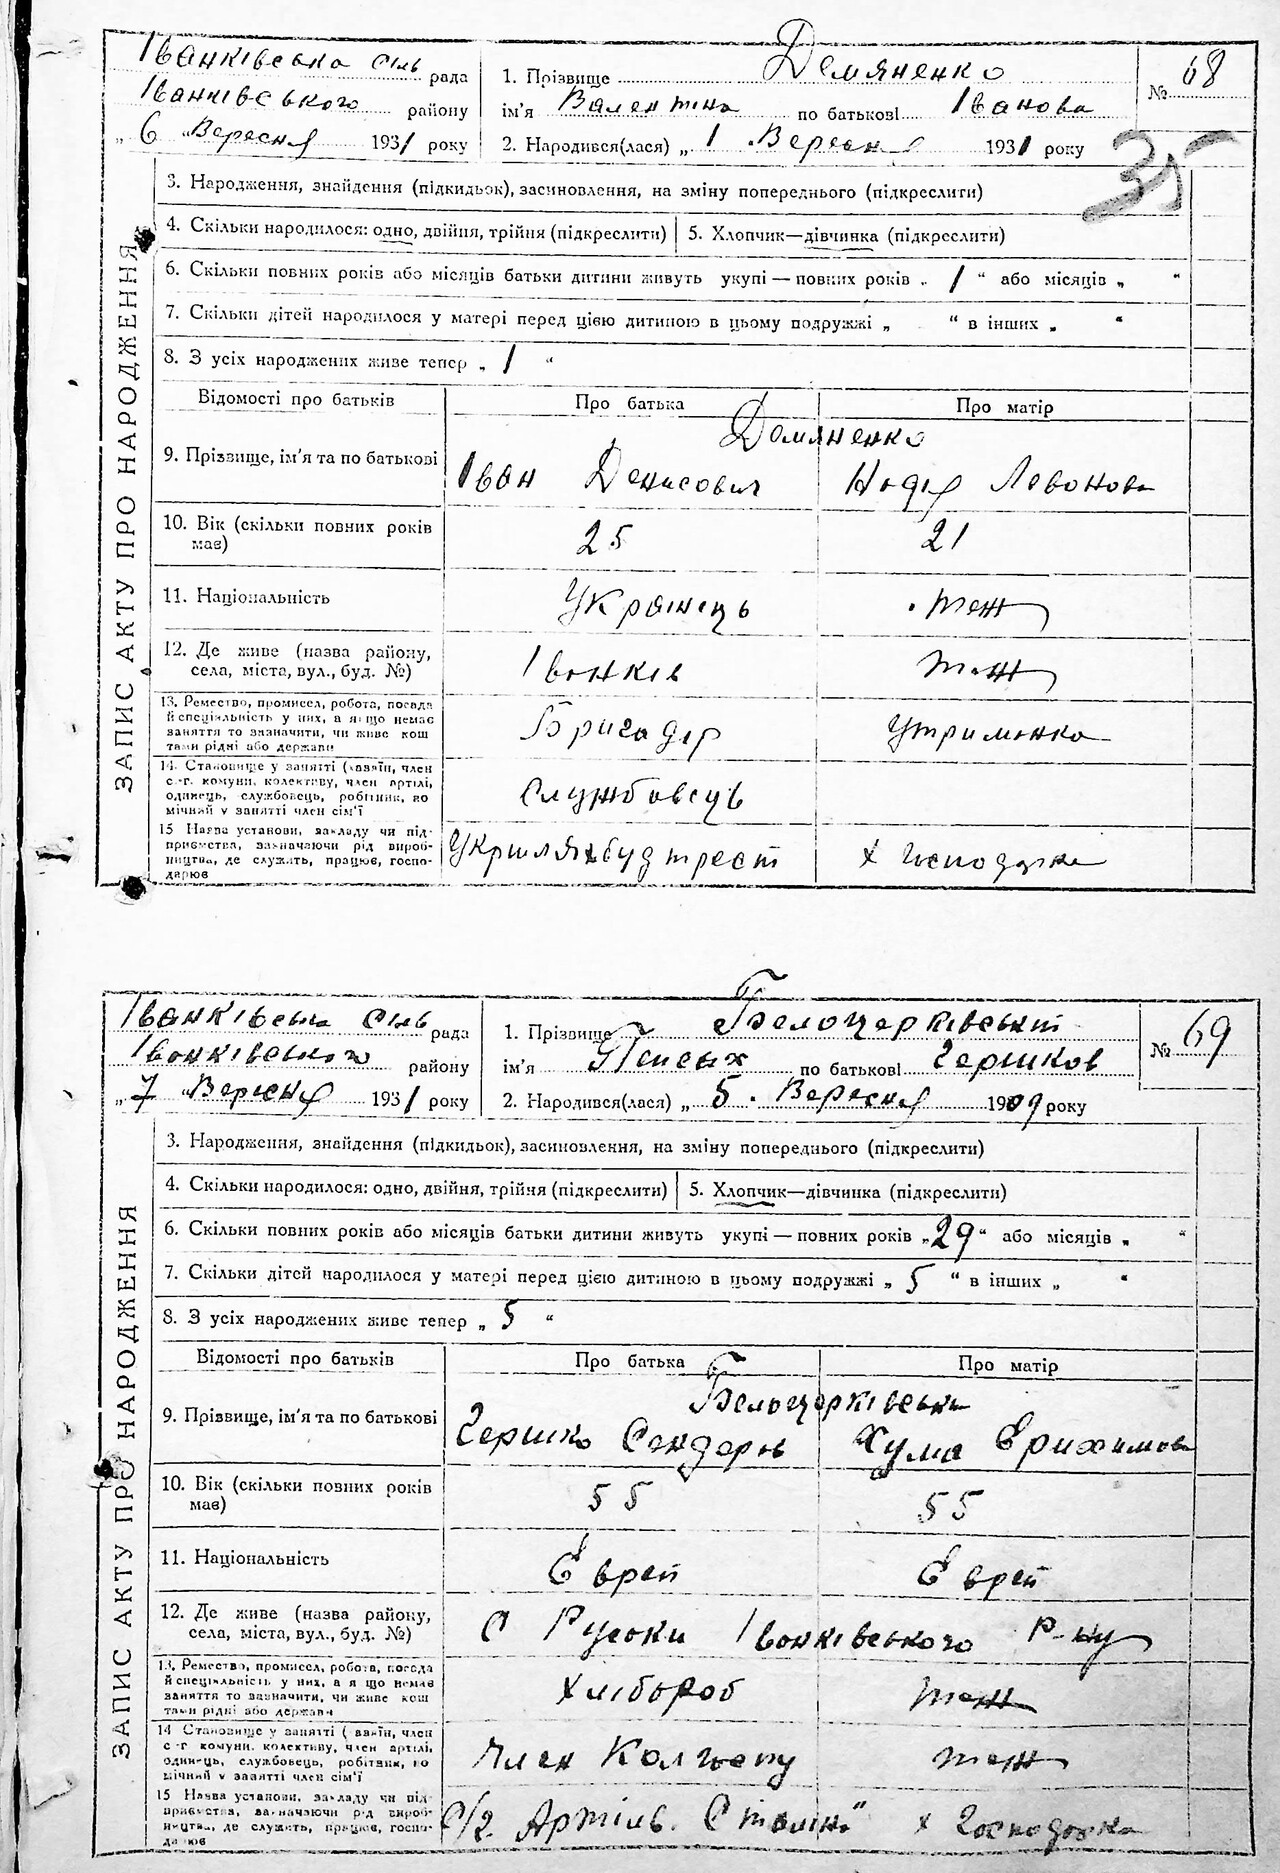 Іванківська сіль рада
Іванківського району
„ 6 „ Вересня 1931 року
1. Прізвище Демяненко
ім'я Валентина по батькові Іванова
2. Народився(лася) „ 1 . Вересня 1931 року
№ 68
35
ЗАПИС АКТУ ПРО НАРОДЖЕННЯ
3. Народження, знайдення (підкидьок), засиновлення, на зміну попереднього (підкреслити)
4. Скільки народилося: одно, двійня, трійня (підкреслити) 5. Хлопчик—дівчинка (підкреслити)
6. Скільки повних років або місяців батьки дитини живуть укупі — повних років „ 1 “ або місяців „ “
7. Скільки дітей народилося у матері перед цією дитиною в цьому подружжі „ “ в інших „ “
8. З усіх народжених живе тепер „ 1 “
Відомості про батьків Про батька Про матір
Демяненко
9. Прізвище, ім'я та по батькові Іван Денисович Надія Левонова
10. Вік (скільки повних років має) 25 21
11. Національність Українець теж
12. Де живе (назва району, села, міста, вул., буд. №) Іванків теж
13. Ремество, промисел, робота, посада
й спеціяльність у них, а якщо немає
заняття то зазначити, чи живе кош
тами рідні або держави
Бригадір Утриманка
14. Становище у занятті (хазяїн, член
с.-г. комуни, колективу, член артілі,
одинець, службовець, робітник, по
мічний у занятті член сім'ї
Службовець
15 Назва установи, закладу чи під-
приємства, зазначаючи рід вироб-
ництва, де служить, працює, госпо-
дарює
Укршляхбудтрест х господарка
Іванківська сіль рада
Іванківського району
„ 7 „ Вересня 1931 року
1. Прізвище Белоцерківський
ім'я Пейсах по батькові Гершков
2. Народився(лася) „ 5 . Вересня 1909 року
№ 69
ЗАПИС АКТУ ПРО НАРОДЖЕННЯ
3. Народження, знайдення (підкидьок), засиновлення, на зміну попереднього (підкреслити)
4. Скільки народилося: одно, двійня, трійня (підкреслити) 5. Хлопчик—дівчинка (підкреслити)
6. Скільки повних років або місяців батьки дитини живуть укупі — повних років „ 29 “ або місяців „ “
7. Скільки дітей народилося у матері перед цією дитиною в цьому подружжі „ 5 “ в інших „ “
8. З усіх народжених живе тепер „ 5 “
Відомості про батьків Про батька Про матір
Белоцерківськи
9. Прізвище, ім'я та по батькові Гершко Сендерів Хума
10. Вік (скільки повних років має) 55 55
11. Національність Єврей Єврей
12. Де живе (назва району, села, міста, вул., буд. №) С Русоки Іванківського Р-ну
13. Ремество, промисел, робота, посада
й спеціяльність у них, а якщо немає
заняття то зазначити, чи живе кош
тами рідні або держави
Хлібороб теж
14 Становище у занятті (хазяїн, член
с-г комуни, колективу, член артілі,
одинець, службовець, робітник, по
мічний у занятті член сім'ї
Член Колгоспу теж
15 Назва установи, закладу чи під-
приємства, зазначаючи рід вироб-
ництва, де служить, працює, госпо-
дарює
С/г. Артіль. Сталіна" х Господарка